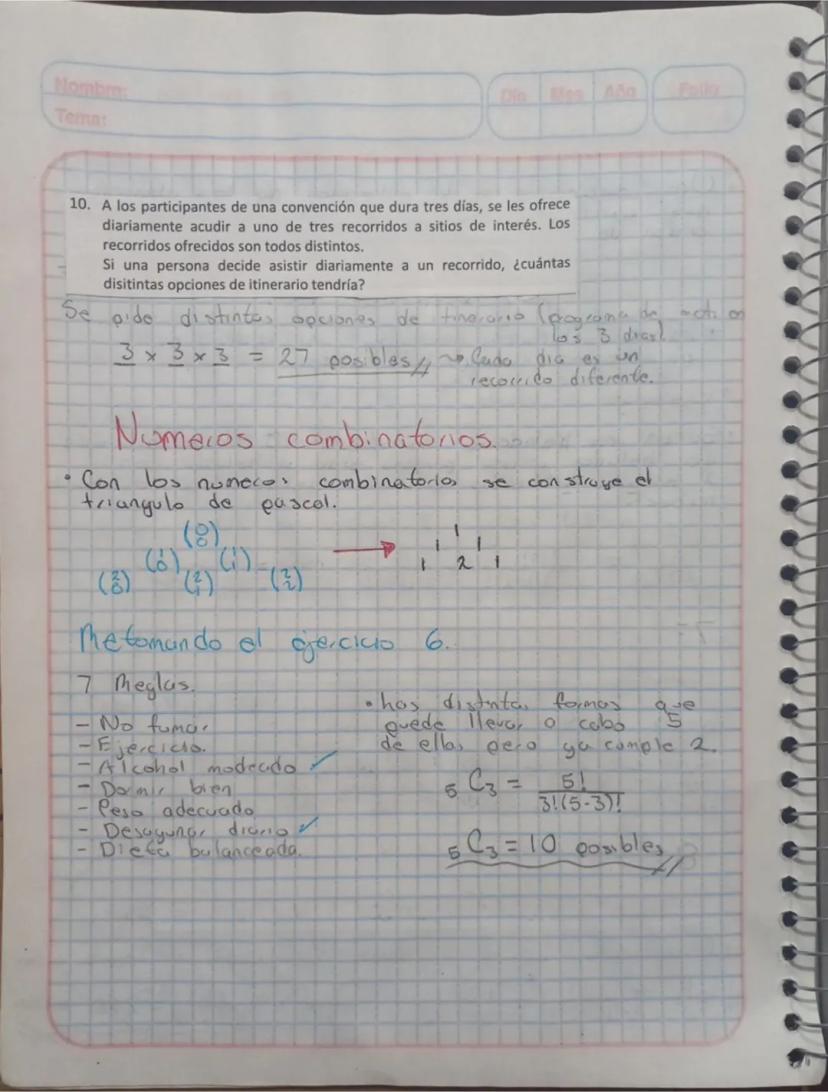 Nombre:
Tema:
Día Mes Año
Folio
10. A los participantes de una convención que dura tres días, se les ofrece
diariamente acudir a uno de tres recorridos a sitios de interés. Los
recorridos ofrecidos son todos distintos.
Si una persona decide asistir diariamente a un recorrido, ¿cuántas
disitintas opciones de itinerario tendría?
Se pide distintas opciones de tinerario (programa de act en
los 3 dias).
3 x 3 x 3 = 27 posibles // → Cada dia es un
recorrido diferente.
Numeros combinatorios.
• Con los numeros combinatorios se construye el
triangulo de pascal.
(0 0)
(1 0) (1 1)
(2 0) (2 1) (2 2)
→
1
1 1
1 2 1
Retomando el ejercicio 6.
7 Reglas.
- No fumar
- Ejercicio.
- Alcohol moderado ✓
- Dormir bien
- Peso adecuado
- Desayunar diario ✓
- Dieta balanceada.
• has distintas formas que
puede llevar a cabo 5
de ellas pero ya cumple 2.
5C3 = 5! / 3!(5-3)!
5C3 = 10 posibles //